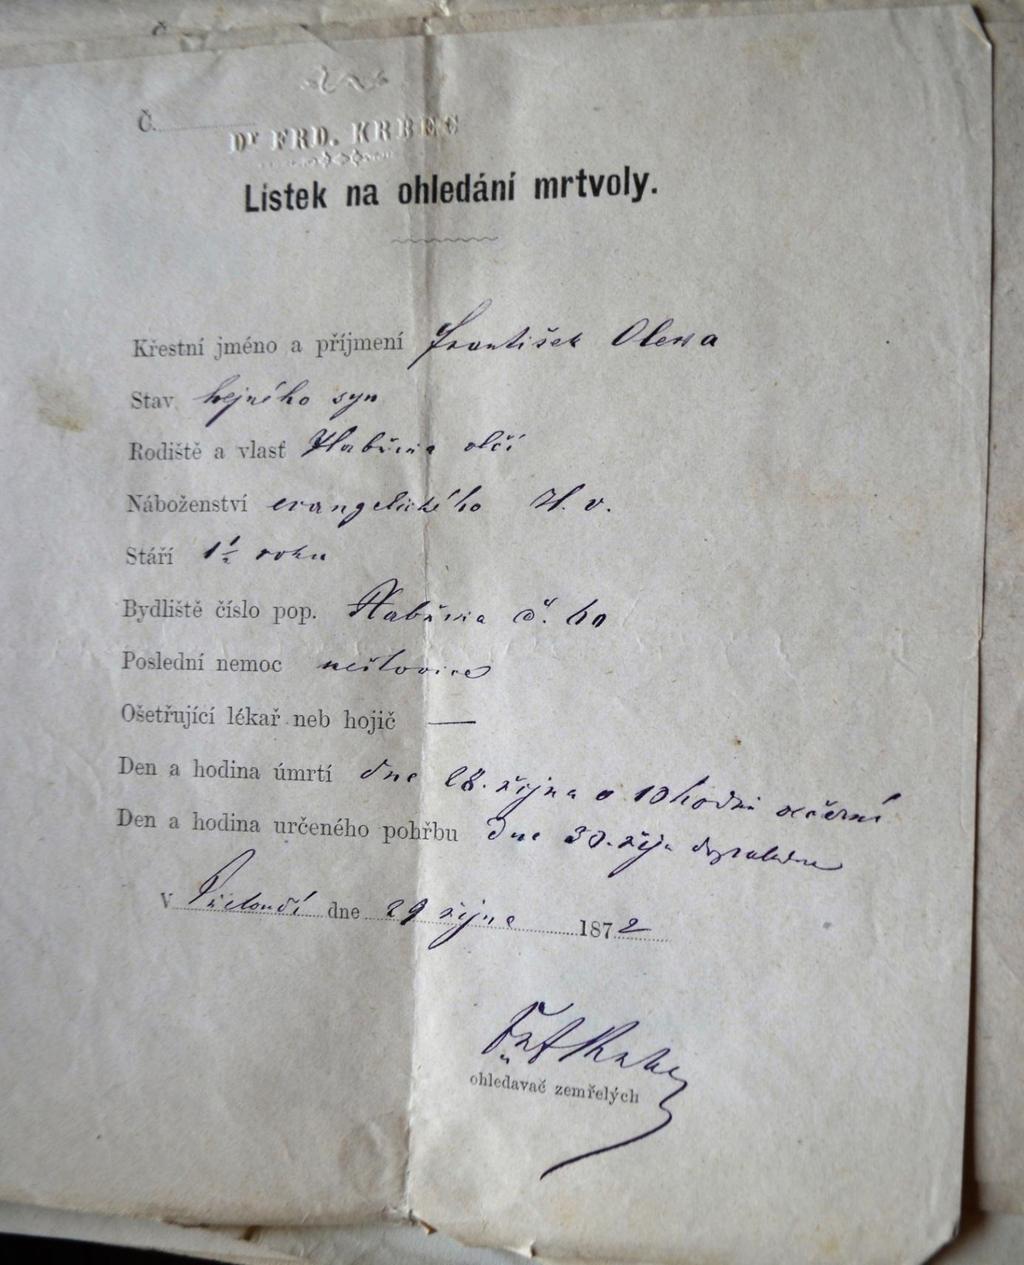 Č.
Dr FRD. KRBEC
Lístek na ohledání mrtvoly.
Křestní jméno a příjmení František
Stav hejného syn
Rodiště a vlast
Náboženství evangelického H. v.
Stáří 1½ roku
Bydliště číslo pop. č.
Poslední nemoc neštovice
Ošetřující lékař neb hojič —
Den a hodina úmrtí dne 28. října o 10 hodin večerní
Den a hodina určeného pohřbu dne 30. říj
V dne 29 října 1872
ohledavač zemřelých